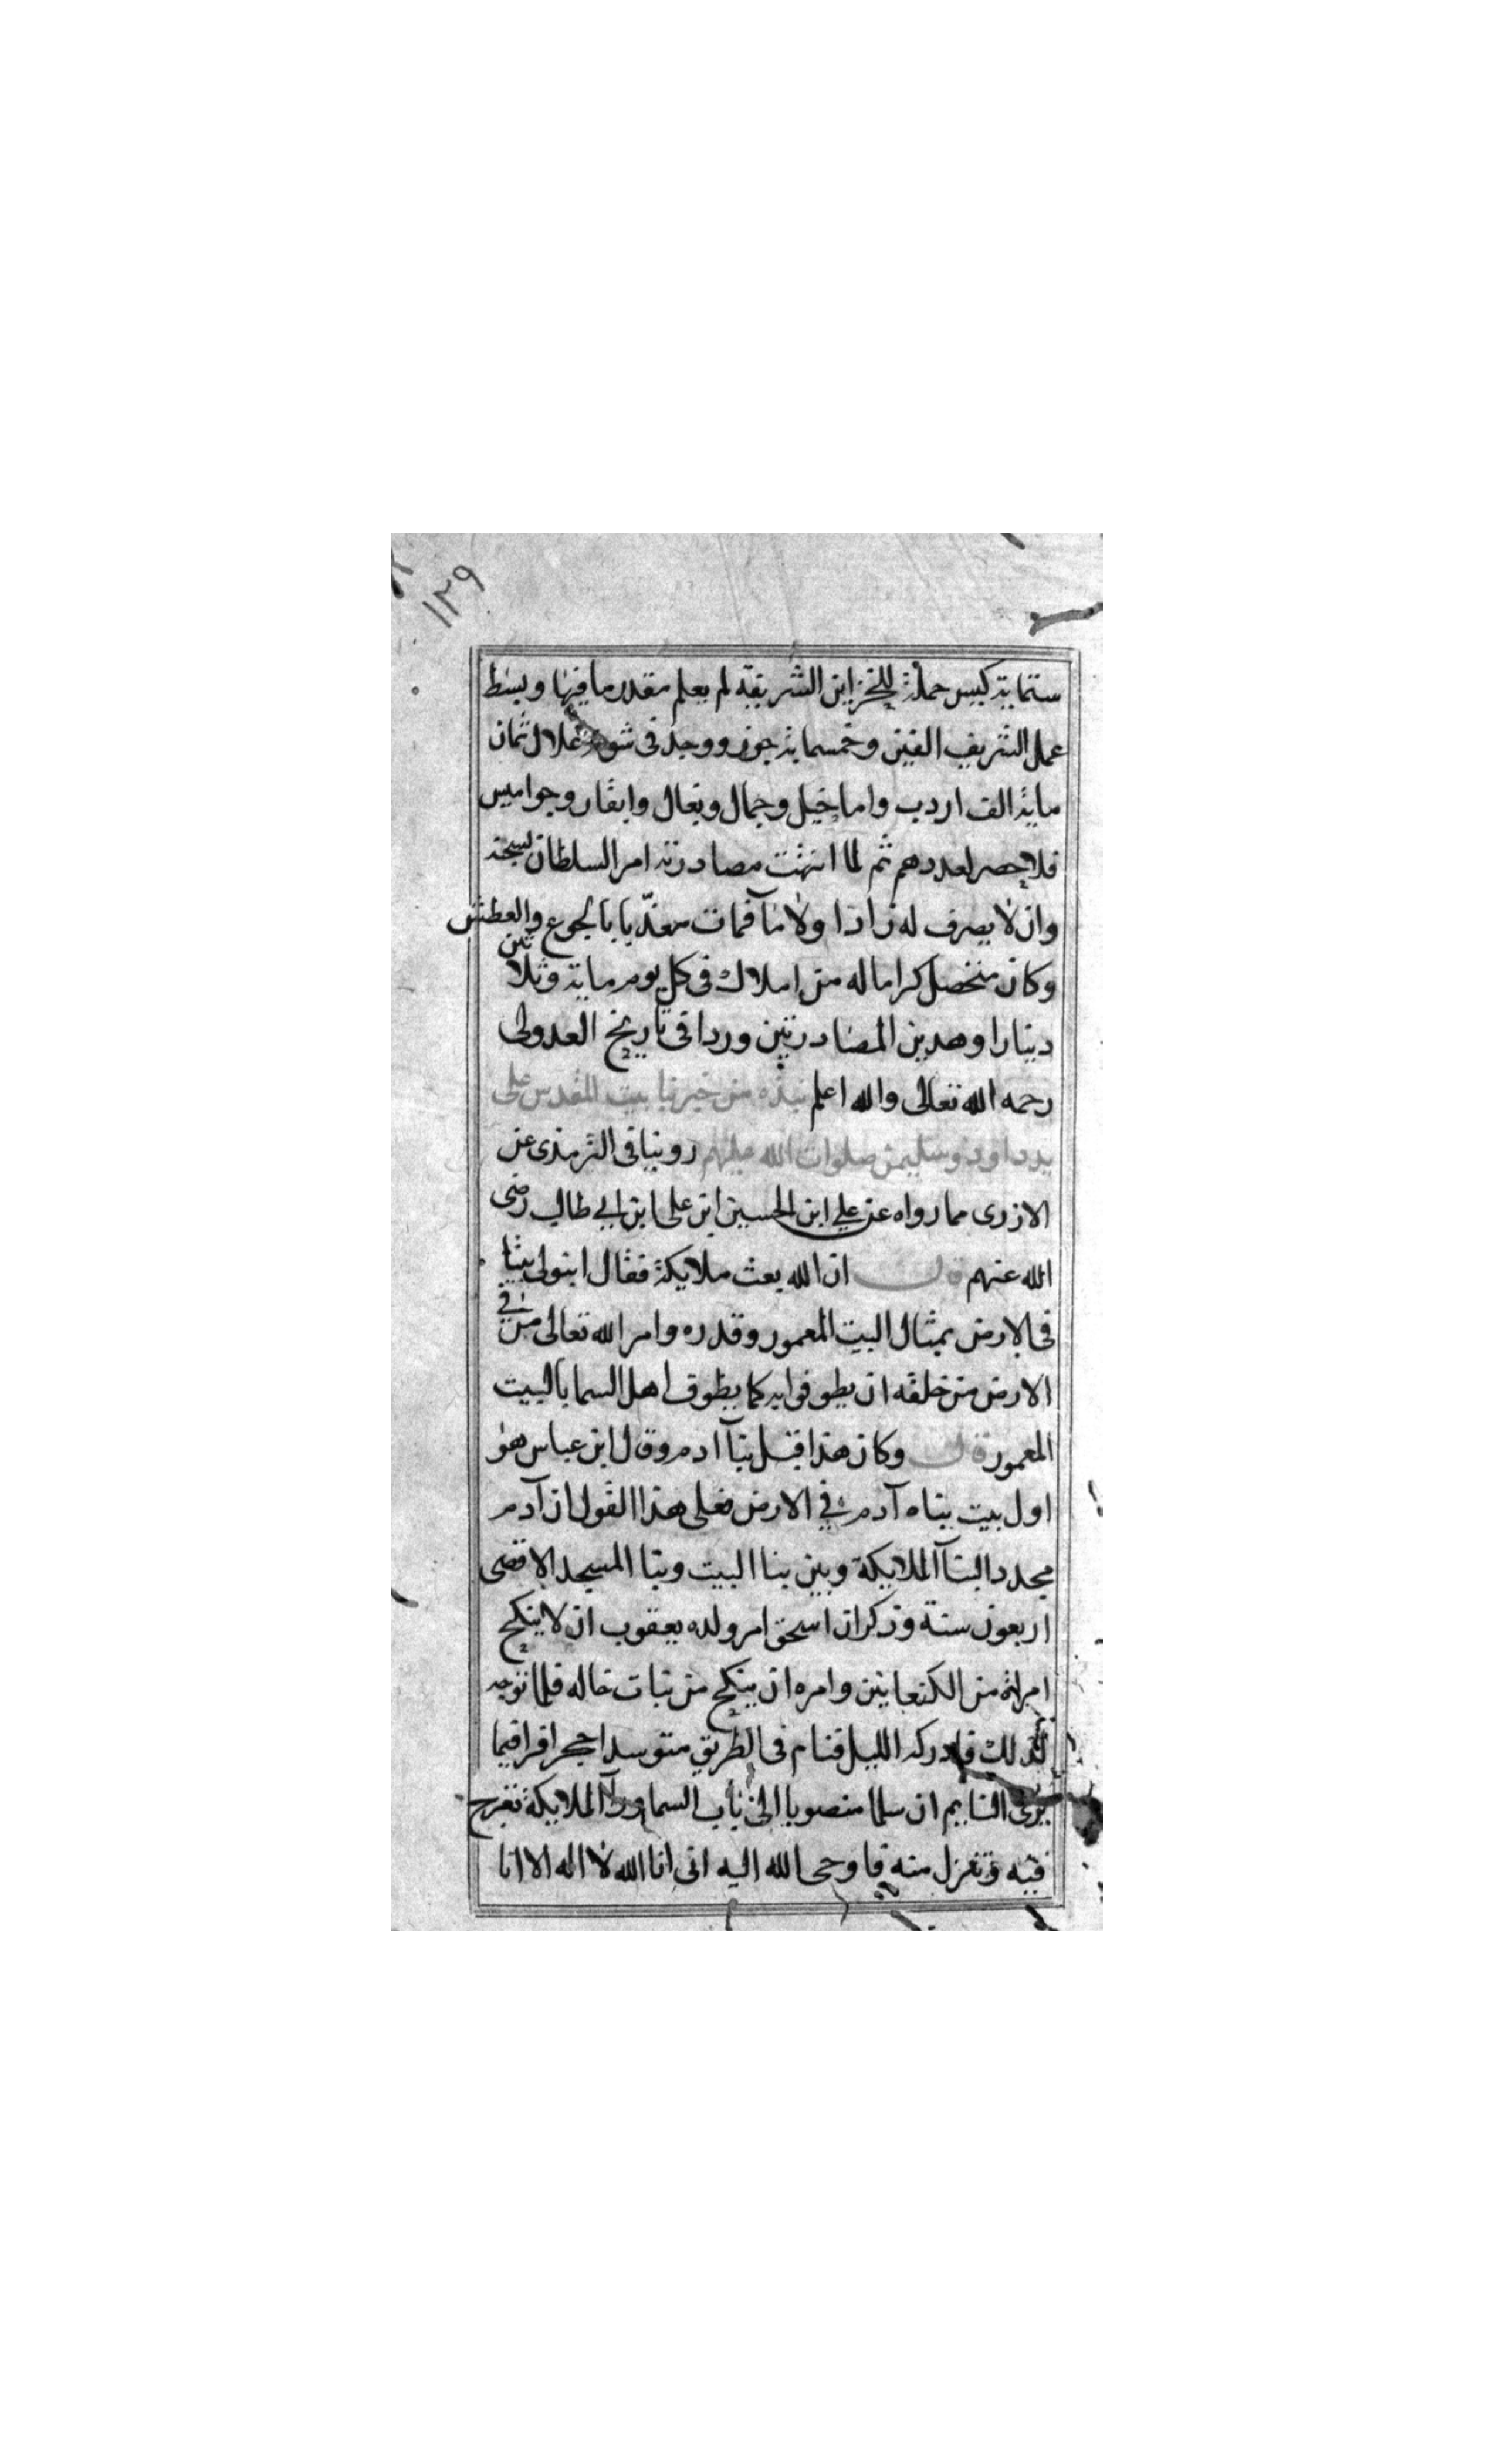 ١٢٩
ستماية كيس حملة للخزاين الشريفة لم يعلم مقدر ما فيها وبسط
عمل الشريف الفين وخمسماية جوز ووجد فى شونه غلال ثمان
ماية الف اردب واما خيل وجمال وبغال وابقار وجواميس
فلا حصر لعددهم ثم لما انتهت مصادرته امر السلطان بسجنه
وان لا يصرف له زادا ولا مآ فمات معذّبا بالجوع والعطش
وكان متحصل كرا ماله من املاك فى كل يوم ماية وثلاثين
دينارا وهذين المصادرتين وردا فى تاريخ العدولى
رحمه الله تعالى والله اعلم نبذه من خبر بنا بيت المقدس على
يد داود وسليمن صلوات الله عليهم روينا فى الترمذى عن
الازرى مما رواه عن على ابن الحسين ابن على ابن ابي طالب رضى
الله عنهم قال ان الله بعث ملايكة فقال ابنو لى بيتا
فى الارض بمثال البيت المعمور وقدره وامر الله تعالى من في
الارض من خلقه ان يطوفوا به كما يطوف اهل السما بالبيت
المعمور قال وكان هذا قبل بنآ ادم وقال ابن عباس هو
اول بيت بناه آدم في الارض فعلى هذا القول ان آدم
مجدد البنآ الملايكة وبين بنا البيت وبنا المسجد الاقصى
اربعون سنة وذكر ان اسحق امر ولده يعقوب ان لا ينكح
امراة من الكنعانين وامره ان ينكح من بنات خاله فلما توجه
لذلك فادركه الليل فنام فى الطريق متوسدا حجرا فراى فيما
يرى النايم ان سلما منصوبا الى باب السما والملايكة تعرج
فيه وتنزل منه فاوحى الله اليه انى انا الله لا اله الا انا